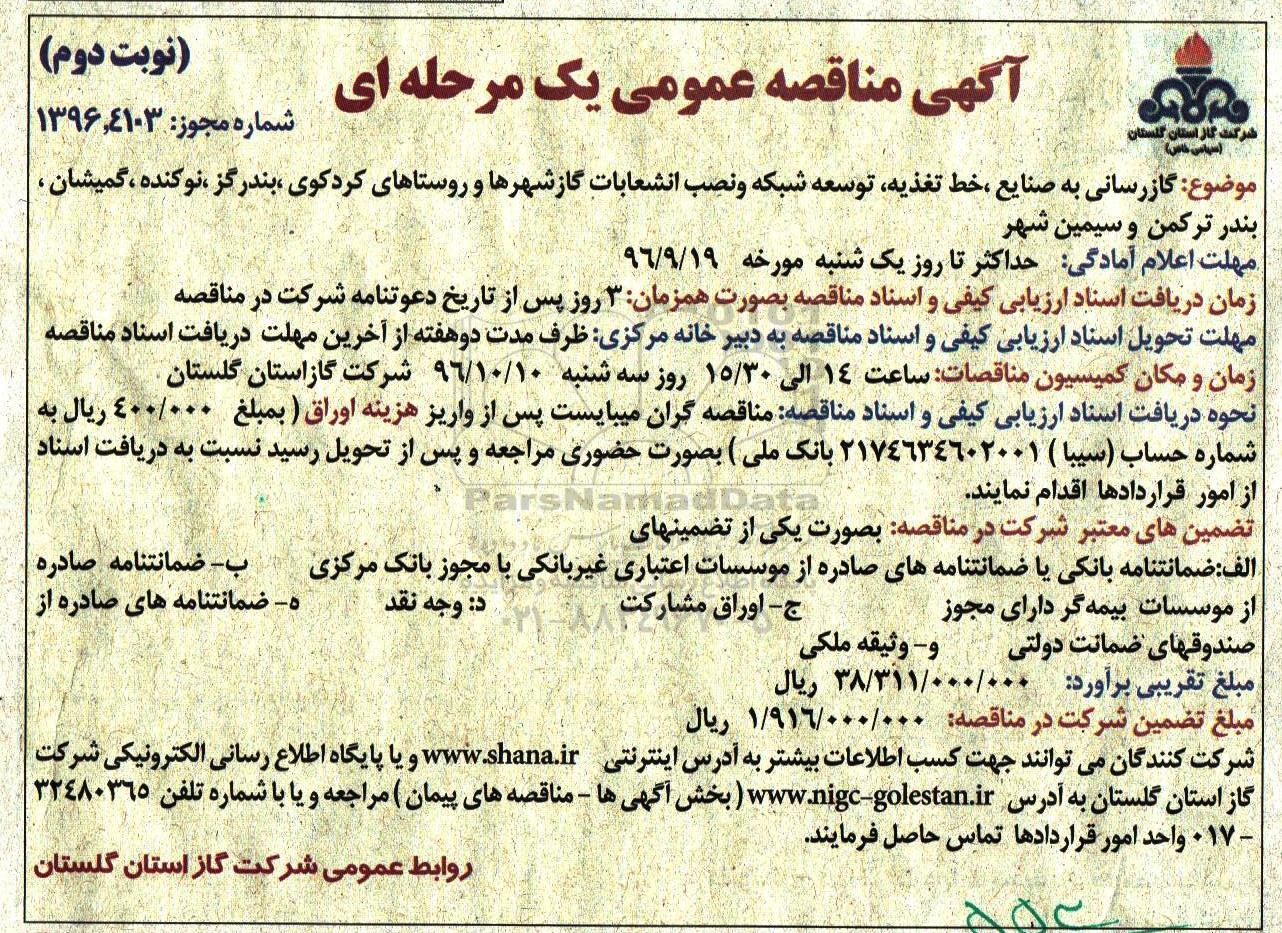 (نوبت دوم)
آگهی مناقصه عمومی یک مرحله ای
شماره مجوز: ۱۳۹۶,۴۱۰۳
شرکت گاز استان گلستان
(سهامی خاص)
موضوع: گازرسانی به صنایع ،خط تغذیه، توسعه شبکه ونصب انشعابات گازشهرها و روستاهای کردکوی ،بندرگز ،نوکنده ،گمیشان ،
بندر ترکمن و سیمین شهر
مهلت اعلام آمادگی: حداکثر تا روز یک شنبه مورخه ۹۶/۹/۱۹
زمان دریافت اسناد ارزیابی کیفی و اسناد مناقصه بصورت همزمان: ۳ روز پس از تاریخ دعوتنامه شرکت در مناقصه
مهلت تحویل اسناد ارزیابی کیفی و اسناد مناقصه به دبیر خانه مرکزی: ظرف مدت دوهفته از آخرین مهلت دریافت اسناد مناقصه
زمان و مکان کمیسیون مناقصات: ساعت ۱۴ الی ۱۵/۳۰ روز سه شنبه ۹۶/۱۰/۱۰ شرکت گازاستان گلستان
نحوه دریافت اسناد ارزیابی کیفی و اسناد مناقصه: مناقصه گران میبایست پس از واریز هزینه اوراق ( بمبلغ ۴۰۰/۰۰۰ ریال به
شماره حساب (سیبا ) ۲۱۷۴۶۳۴۶۰۲۰۰۱ بانک ملی ) بصورت حضوری مراجعه و پس از تحویل رسید نسبت به دریافت اسناد
از امور قراردادها اقدام نمایند.
ParsNamadData
تضمین های معتبر شرکت در مناقصه: بصورت یکی از تضمینهای
الف:ضمانتنامه بانکی یا ضمانتنامه های صادره از موسسات اعتباری غیربانکی با مجوز بانک مرکزی ب- ضمانتنامه صادره
از موسسات بیمه‌گر دارای مجوز ج- اوراق مشارکت د: وجه نقد ه- ضمانتنامه های صادره از
صندوقهای ضمانت دولتی و- وثیقه ملکی
مبلغ تقریبی برآورد: ۳۸/۳۱۱/۰۰۰/۰۰۰ ریال
مبلغ تضمین شرکت در مناقصه: ۱/۹۱۶/۰۰۰/۰۰۰ ریال
شرکت کنندگان می توانند جهت کسب اطلاعات بیشتر به آدرس اینترنتی www.shana.ir و یا پایگاه اطلاع رسانی الکترونیکی شرکت
گاز استان گلستان به آدرس www.nigc-golestan.ir ( بخش آگهی ها - مناقصه های پیمان ) مراجعه و یا با شماره تلفن ۳۲۴۸۰۳۶۵
- ۰۱۷ واحد امور قراردادها تماس حاصل فرمایند.
روابط عمومی شرکت گاز استان گلستان